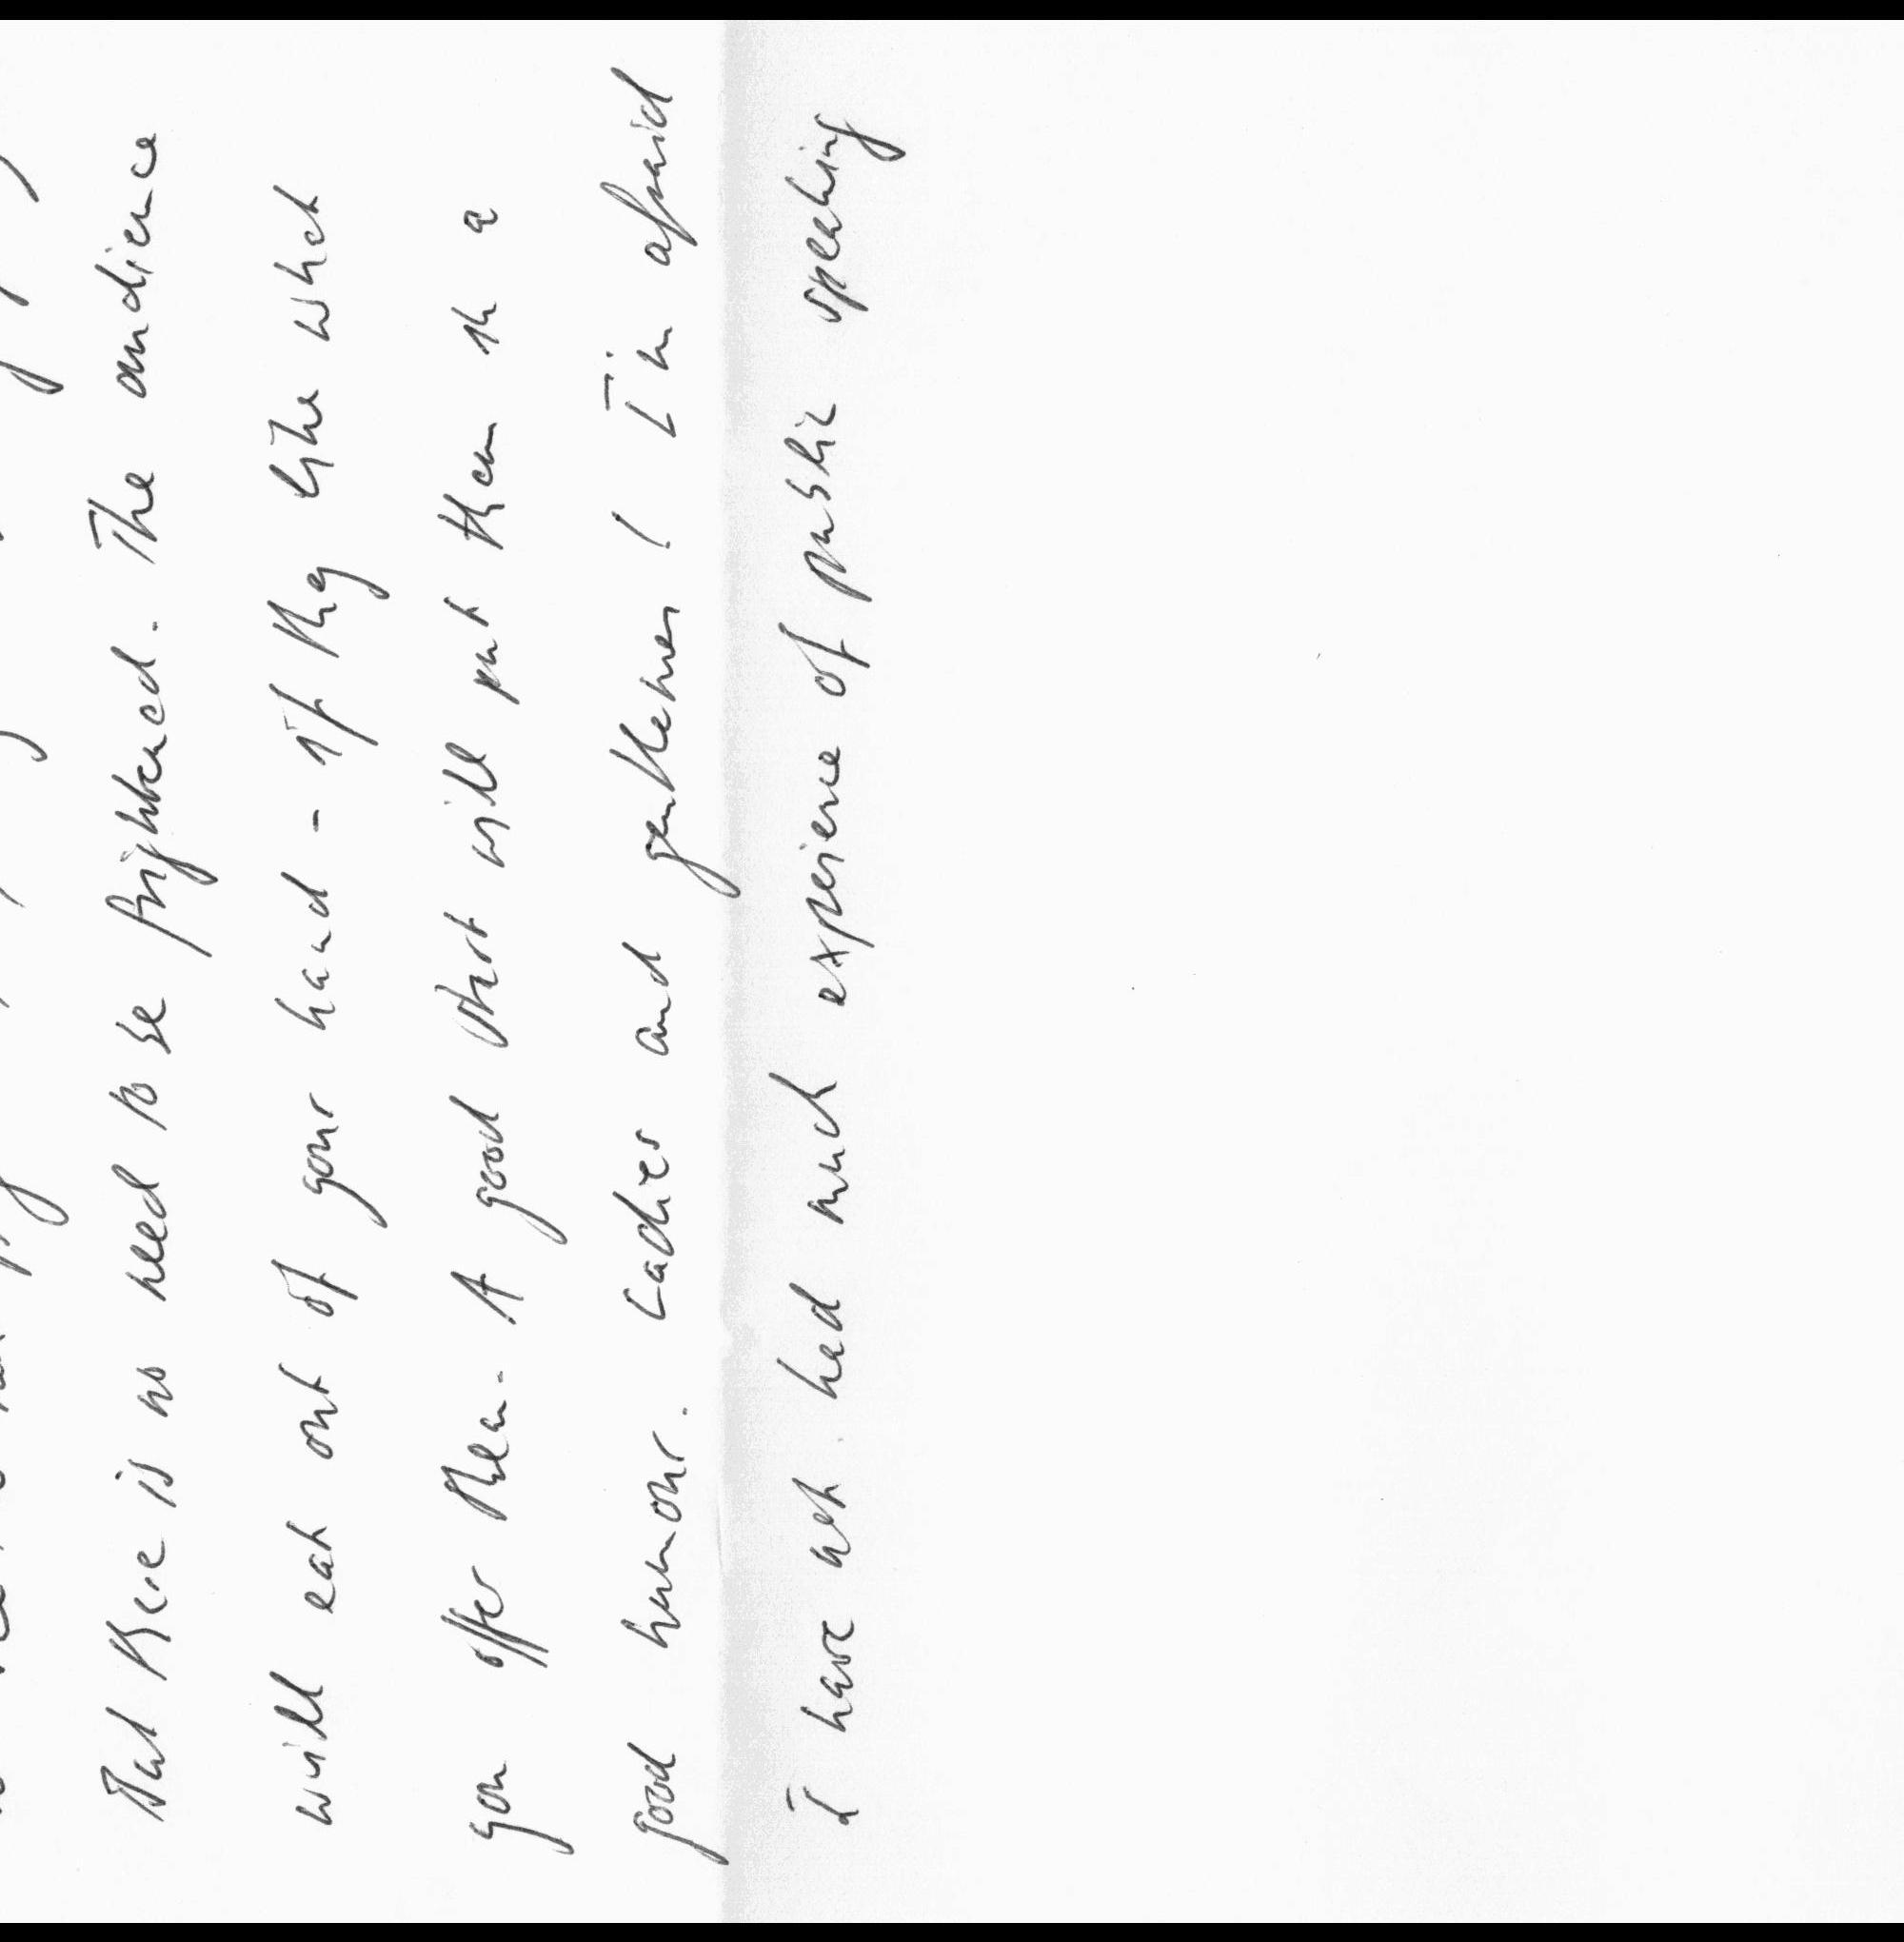 But there is no need to be frightened. The audience
will eat out of your hand - if they like what
you offer them. A good start will put them in a
good humour. Ladies and gentlemen! I'm afraid
I have not had much experience of public speaking